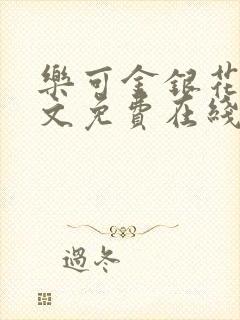 樂可金銀花
文免費在綫
過冬